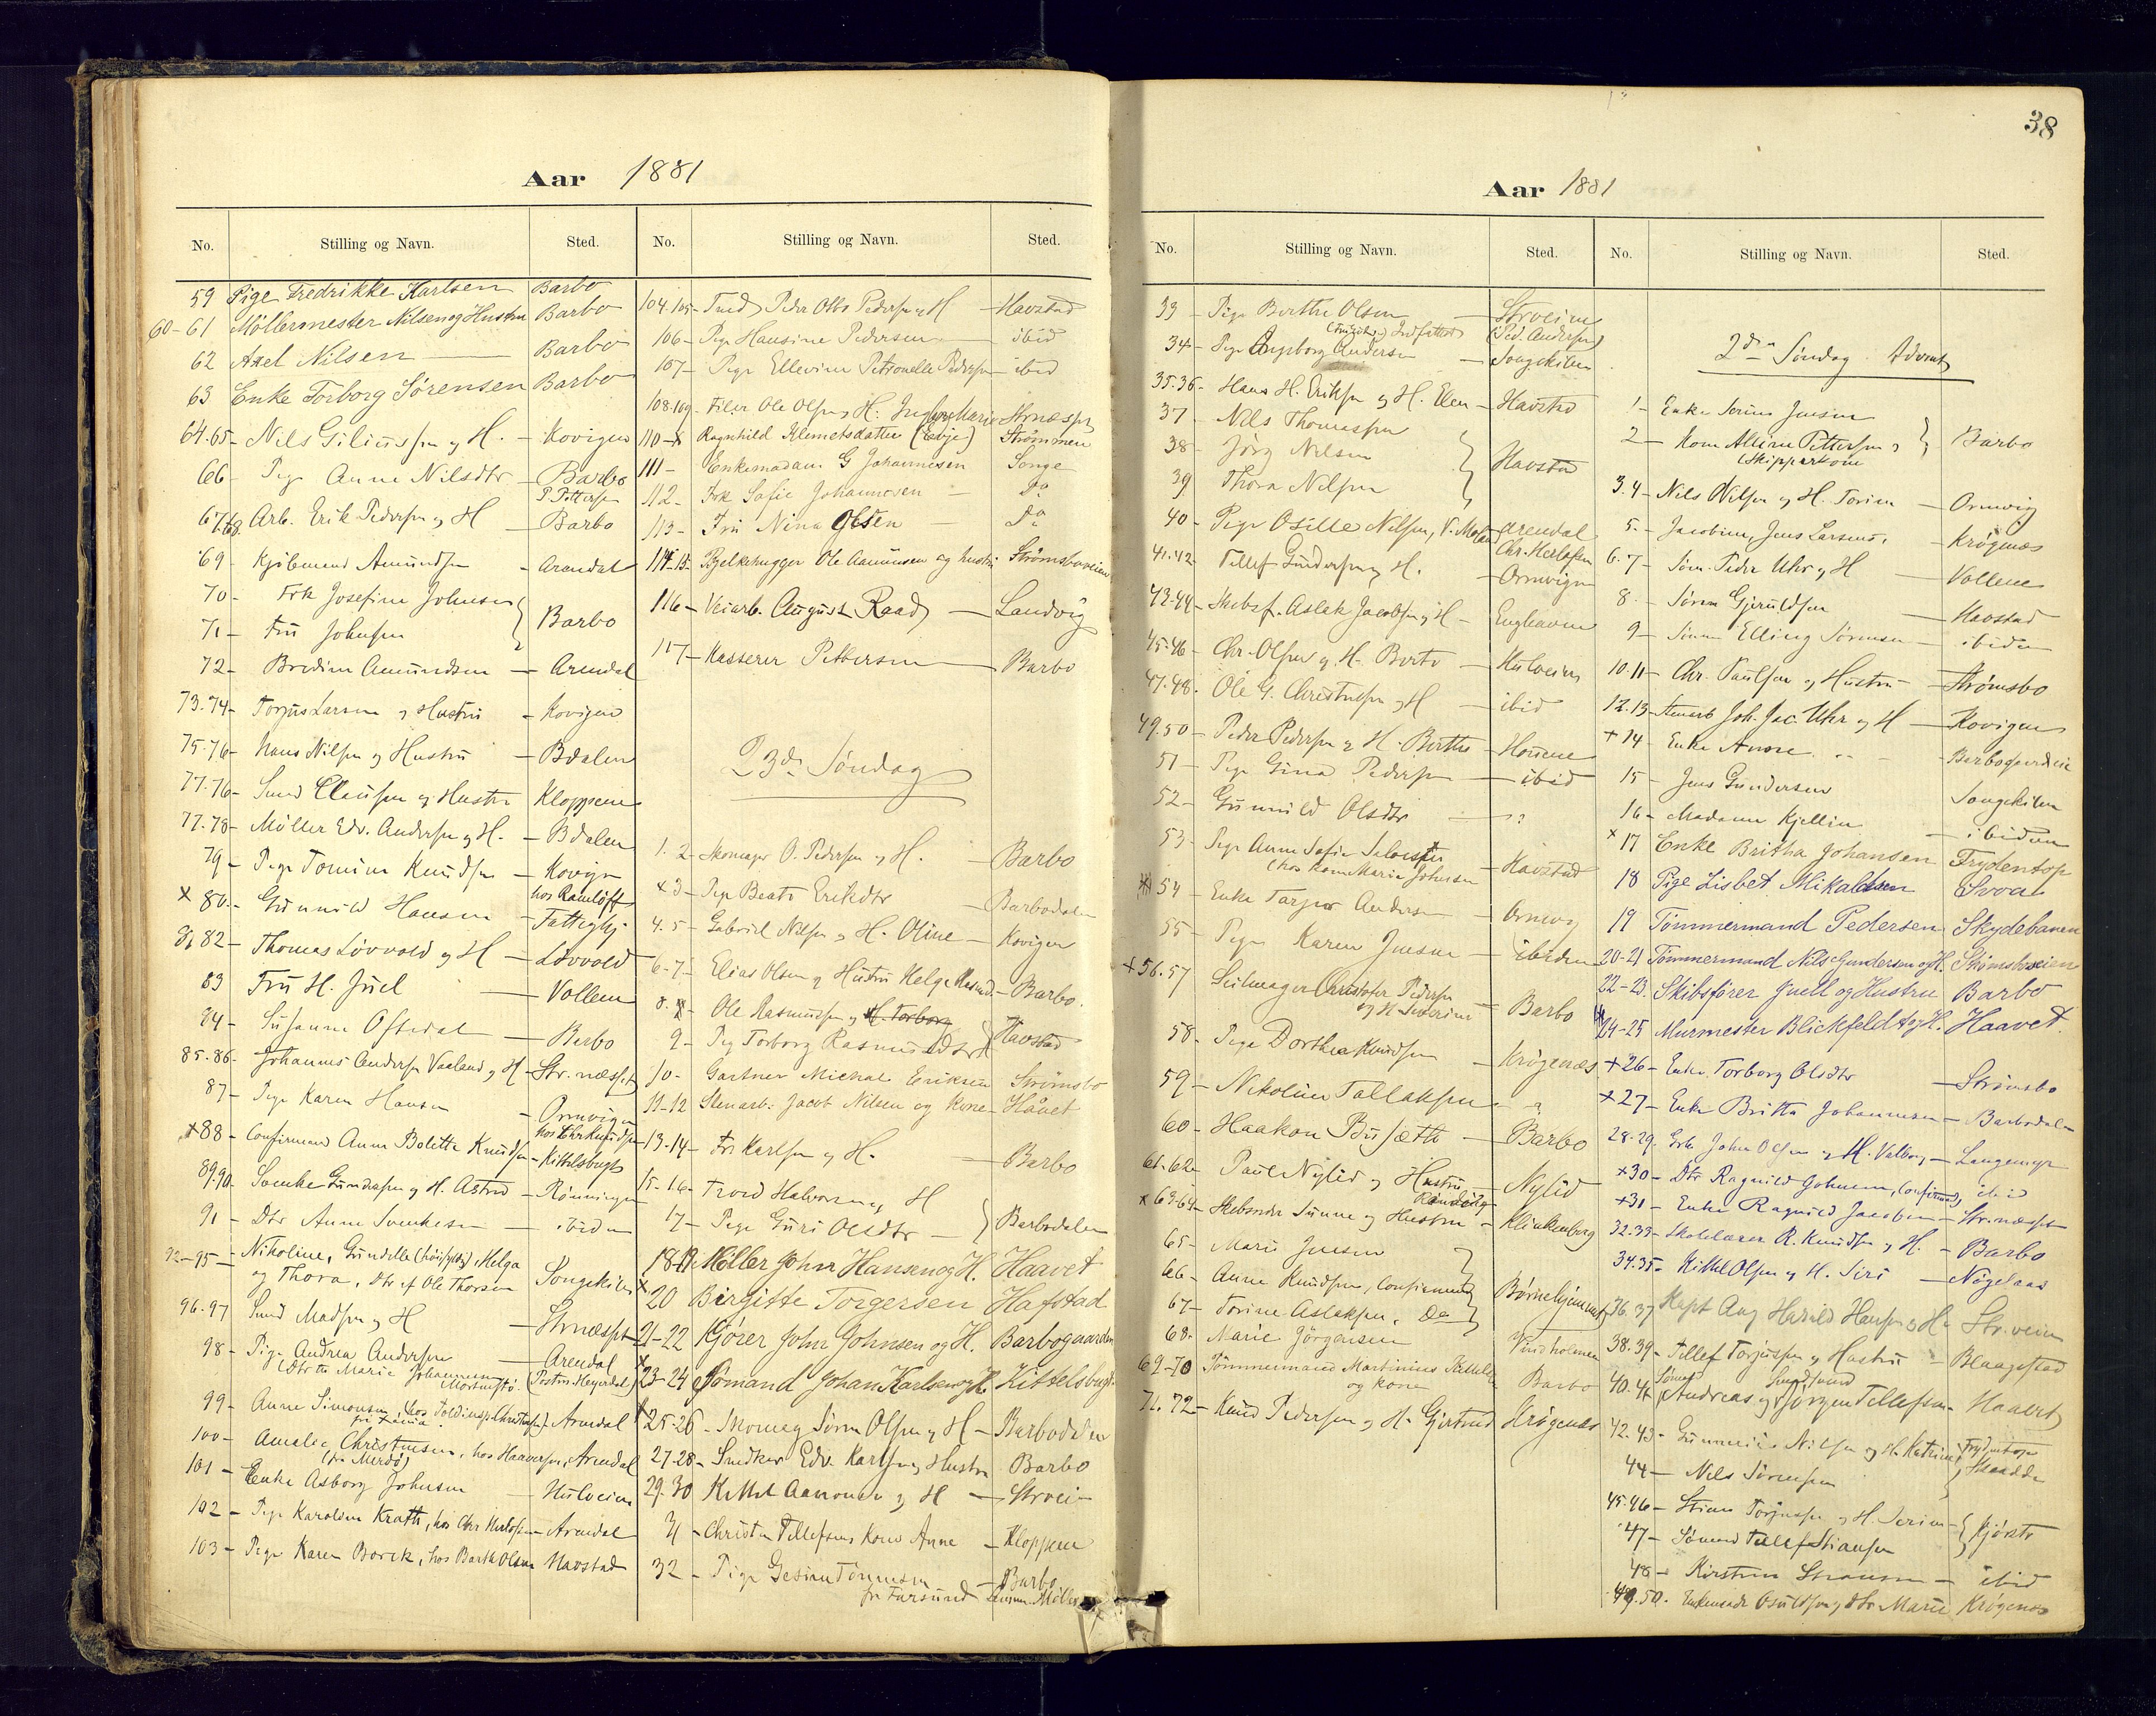 38
Aar 1881
No. Stilling og Navn. Sted.
59 Pige Fredrikke Karlsen Barbo
60-61 Möllermester Nilsen og Hustru Barbo
62 Axel Nilsen — Barbo
63 Enke Torborg Sørensen Barbo
64.65- Nils Giliussen og H. - Kovigen
66- Pige Anne Nilsdtr - Barbo
P. Pettersen
67.68. Arb. Erik Pedersen og H - Barbo
69- Kjöbmand Amundsen - Arendal
70- Frk Josefine Johnsen
71- Fru Johnsen } Barbo
72- Bredine Amundsen - Arendal
73.74- Torjus Larsen og Hustru - Kovigen
75-76- Hans Nilsen og Hustru - Bdalen
77.76- Smed Clausen og Hustru Kloppene
77.78- Möller Edv. Andersen og H. - Bdalen
79- Pige Tomine Knudsen - Kovign
x 80- Gunnild Hansen - hos Ramlöff
Fattighj.
81 82- Thomas Lövvold og H - Lövvold
83 Fru H. Juel - Vollene
84- Susanne Oftedal - Barbo
85.86- Johannes Andersen Vaaland og H - Str. næsset
87- Pige Karen Hansen - Ormvigen
hos Chr Knudsen
+88- Confirmand Anne Bolette Knudsen - Kittelsbugt
89.90- Svenke Gundersen og H. Astrid - Rønningen
91- Dtr Anne Svenkesen - ibidem
92-95- Nikoline, Gundelle, Helga
og Thora, Dtr af Ole Thorsen Songekilen
96.97 Smed Madsen og H - Strnæsset
98- Pige Andrea Andersen - Arendal
(Dtr til Marie Johannesen (Postm. Heyerdal)
99- Anne Simonsen, hos Toldinsp. Christensen, Arendal
100- Amalie Christensen, hos Haaversen, Arendal
(fra Merdø)
101- Enke Asborg Johnsen - Hulveien
102- Pige Karoline Krath, hos Chr Herlofsen - Arendal
103- Pige Karen Borck, hos Barth Olsen Havstad
No. Stilling og Navn. Sted.
104.105- Smed Peder Olbs Pedersen og H - Havstad
106- Pige Hansine Pedersen - ibid
107- Pige Ellevine Petronelle Pedersen - ibid
108.109- Filer Ole Olsen og H: Ingbor Marie Strnæsset
110- Ragnhild Klemetsdatter (Evje) Strömmen
111- Enkemadam G Johannesen Songe
112- Frk Sofie Johannesen - Do
113- Fru Nina Olsen Do
114-15- Bjelkehugger Ole Aamundsen og hustru Strömsboveien
116- Veiarb. August Raad - Landvig
117- Kasserer Pettersen - Barbo
23de Söndag
1.2- Skomager O. Pedersen og H. - Barbo
x3- Pige Beate Eriksdtr - Barbodalen
4.5- Gabriel Nilsen og H. Oline - Kovigen
6-7- Elias Olsen og Hustru Helge Rasmusd. - Barbo.
8. Ole Rasmussen og H. Torborg
9- Pig Torborg Rasmusdtr } Havstad
10- Gartner Michale Eriksen Strömsbo
11-12 Stenarb: Jacob Nilsen og Kone - Håvet
13-14- Fr. Karlsen og H. - Barbo
15-16- Trond Halvorsen og H
17- Pige Guri Olsdtr - } Barbodalen
18-19 Möller John Hansen og H. Haavet
x 20 Birgitte Torgersen Hafstad
21-22 Kjörer John Johnsen og H. Barbogaarden
x 23-24 Sömand Johan Karlsen og H. Kittelsbugt
25-26- Skomag Sören Olsen og H - Barbodalen
27-28- Snedker Edv. Karlsen og Hustru Barbo
29-30 Kittel Aanonsen og H - Strvein
31- Christen Tellefsens Kone Anne - Kloppene
32- Pige Gesine Tönnesen - Barbo
fra Farsund
Aar 1881
No. Stilling og Navn. Sted.
33- Pige Berthe Olsen - Strveien
34- Pige Ingeborg Andersen - Songekilen
(Ped. Andersen)
35.36- Hans H. Eriksen og H. Elen - Havstad
37- Nils Thomassen
38- Jörg Nilsen
39 Thora Nilsen } Havstad
40- Pige Osille Nilsen, Arendal
Chr. Herlofsen
41.42- Tellef Gundersen og H. - Ormvigen
43-44- Skibsf. Aslak Jacobsen og H - Enghavene
45-46- Chr. Olsen og H. Berte - Hulveien
47.48. Ole G. Christensen og H - ibid
49.50- Peder Pedersen og H. Berthe - Houene
51- Pige Gina Pedersen - ibid
52- Gunnild Olsdtr - ?
53- Pige Anne Sofie
(hos Kone Marie Johnsen - Havstad
54- Enke Tarjer Andersen - Ormvig
55- Pige Karen Jensen - ibidem
+56.57 Seilmager Christofer Pedersen
og H Severine - Barbo
58. Pige Dorthea Knudsen - Krögenæs
59- Nikoline Tallaksen - "
60- Haakon Busæth - Barbo
61-62- Paul Nylid og Hustru - Nylid
x 63-64- Skibsreder Sunne og Hustru - Klinkenberg
65- Marie Jensen
66- Anne Knudsen, Confirmand
67- Torine Aslaksen, Do } Børnehjemmet
68. Marie Jörgensen Vindholmen
69-70 Tömmermand Martinius Kittelsen
og kone Barbo
71.72- Knud Pedersen og H. Gjertrud Krögenæs
No. Stilling og Navn. Sted.
2den Söndag Advent
1- Enke Serine Jensen
2- Kone Alvine Pettersen
(Skipperkone } Barbo
3.4- Nils Nilsen og H. Torine - Ormvig
5.- Jacobine, Jens Larsens. - Krögnæs
6.7- Söm. Peder Uhr og H - Vollene
8.- Sören Gjeruldsen - Havstad
9- Elling Sörensen - ibidem
10-11- Chr. Paulsen og Hustru - Strömsbo
12.13- Stenarb Joh. Jac. Uhr og H - Kovigen
+14- Enke Anne Barbogaardene
15- Jens Gundersen Songekilen
16- Madame Kjellin - ibidem
x 17 Enke Britha Johansen Frydentop
18 Pige Lisbet Mikalsen Svoal
19 Tømmermand Pedersen Skydebanen
20-21 Tømmermand Nils Gundersen og H. Strömsboveien
22-23. Skibsfører Juell og Hustru Barbo
24-25 Murmester Blickfeldt og H. Haavet.
+26- Enke Torborg Olsdtr - Strömsbo
+27- Enke Britta Johannesen - Barbodalen
28-29. Arb. John Olsen og H. Valborg - Langemyr
+30- Dtr Ragnild Johnsen, (Confirmand) ibid
+31- Enke Ragnild Jacobsen - Str.næsset
32.33- Skolelærer R. Knudsen og H. - Barbo
34.35- Kittel Olsen og H. Siri - Nögelaas
36.37 Kapt Aug Harald Hansen og H. Str.veien
38.39- Tellef Torjussen og Hustru - Blaagestad
40.41 Andreas og Jörgen Tellefsen - Haavet
42.43- Gunnerius Nilsen og H. Katrine
44- Nils Sörensen
45-46- Stian Torjussen og H. Serine
47- Sömand Tellef Stiansen } Kjörste
48- Kirstine Stiansen - ibid
49.50. Enkemade Osuldsen og dtr Marie Krögenæs